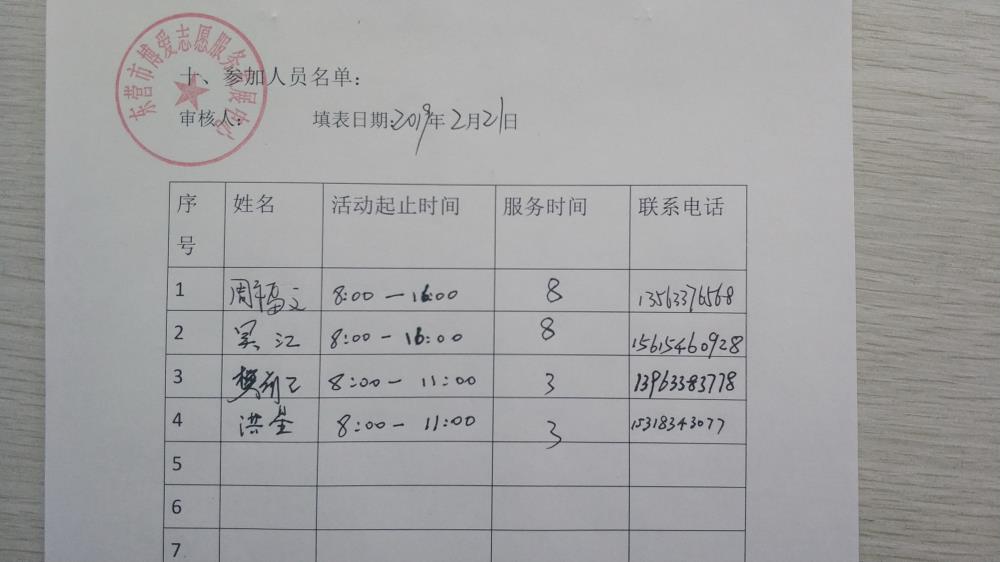 东营市博爱志愿服务发展中心
十、参加人员名单：
审核人： 填表日期:2019年2月21日
序号 姓名 活动起止时间 服务时间 联系电话
1 周福文 8:00 — 16:00 8 13563376568
2 吴江 8:00 — 16:00 8 15615460928
3 8:00 — 11:00 3 13963383778
4 洪奎 8:00 — 11:00 3 15318343077
5
6
7